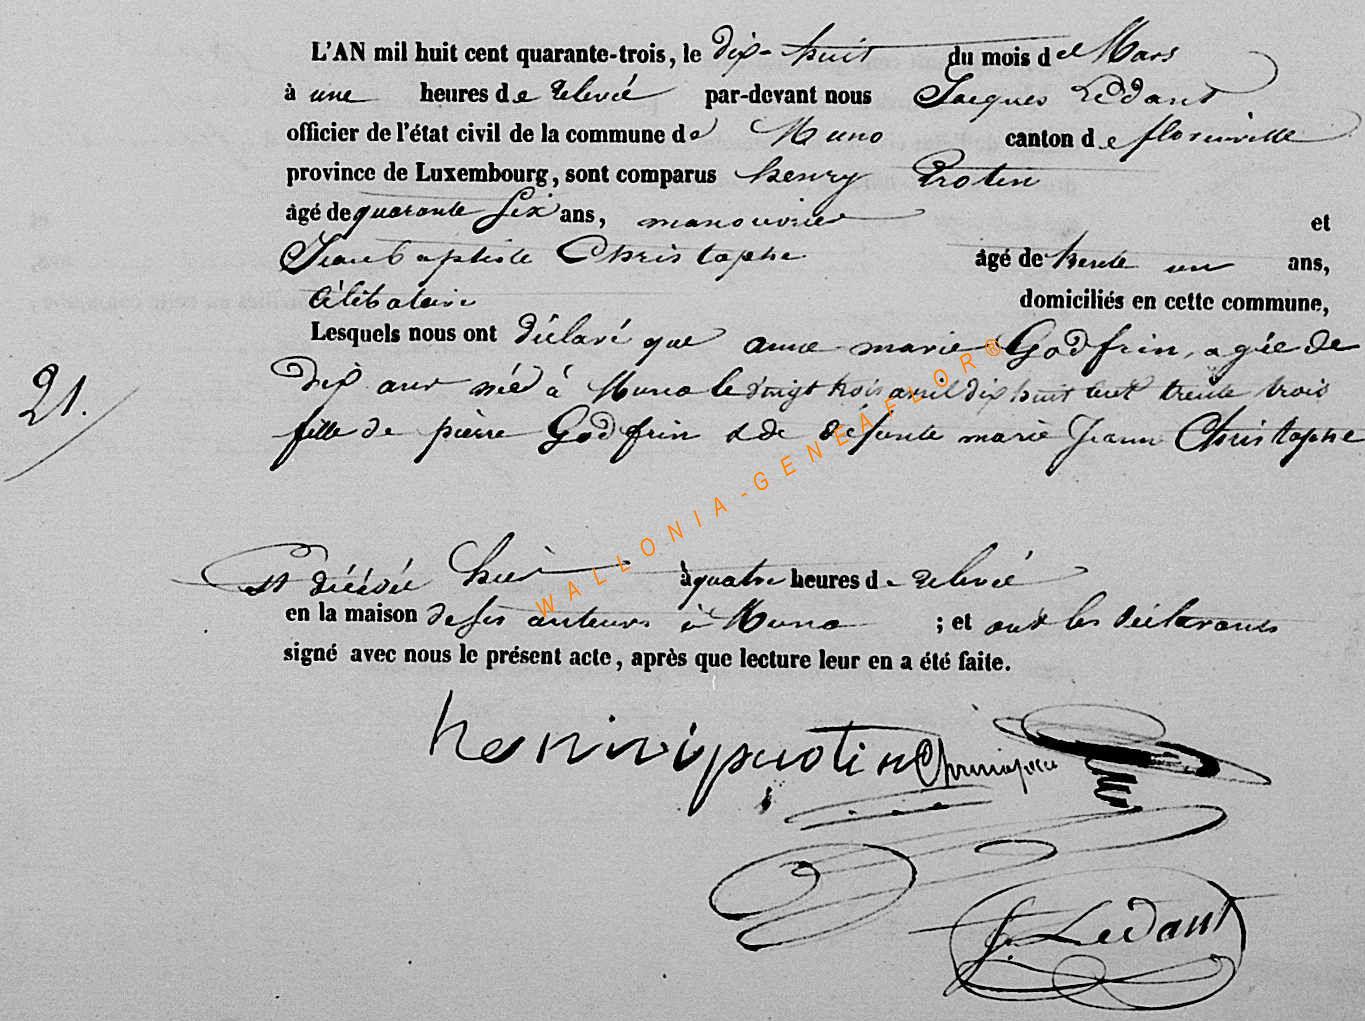 L'AN mil huit cent quarante-trois, le dix-huit du mois de Mars
à une heures de relevée par-devant nous Jacques Ledant
officier de l'état civil de la commune de Muno canton de florenville
province de Luxembourg, sont comparus henry Protin
âgé de quarante Six ans, manouvrier et
Jean baptiste Christophe âgé de trente un ans,
Célibataire domiciliés en cette commune,
Lesquels nous ont déclaré que anne marie Godfrin, agée de
dix ans née à Muno le vingt trois avril dix huit cent trente trois
21.
fille de pierre Godfrin & de défunte marie Jeanne Christophe
est décédée hier à quatre heures de relevée
en la maison de ses auteurs à Muno ; et ont les déclarants
signé avec nous le présent acte, après que lecture leur en a été faite.
henri protin
J. Ledant
WALLONIA-GENEAFLOR®